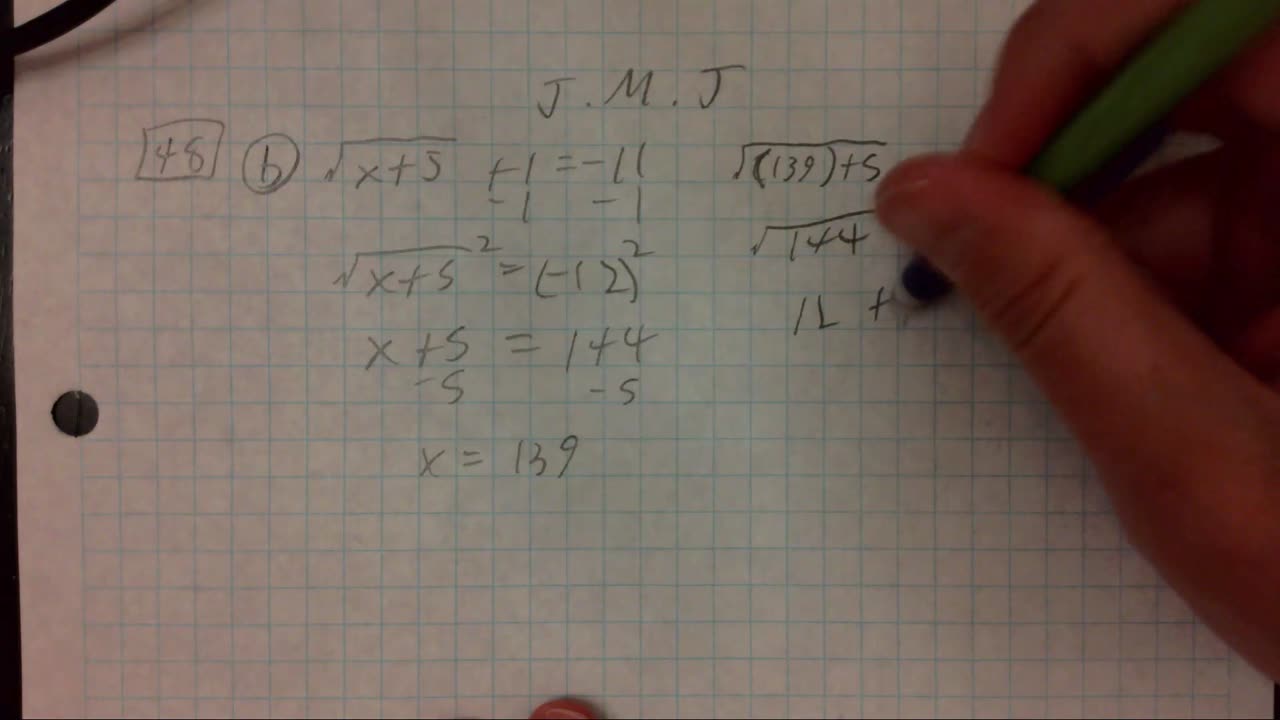 J.M.J
48 b √x+5 +1 = -11
-1 -1
√x+5² = (-12)²
x+5 = 144
-5 -5
x = 139
√(139)+5
√144
12 +